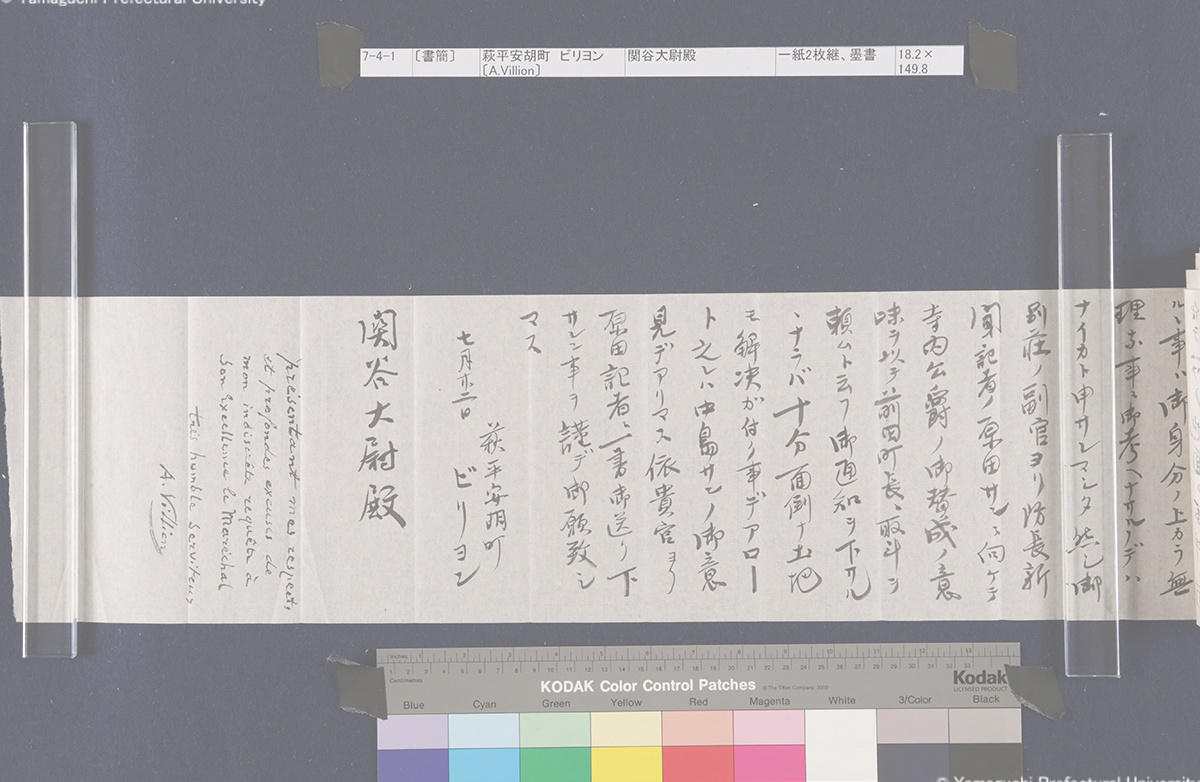 © Yamaguchi Prefectural University
7-4-1 〔書簡〕 萩平安胡町 ビリヨン 〔A.Villion〕 関谷大尉殿 一紙2枚継、墨書 18.2×149.8
ル丶事ハ御身分ノ上カラ無
理な事ト御考ヘナサルヽデハ
ナイカト申サレマシタ然シ御
別荘ノ副官ヨリ防長新
聞記者ノ原田サンニ向ケテ
寺内公爵ノ御賛成ノ意
味ヲ以テ前田町長ニ取斗シ
頼ムト云フ御通知ヲ下サル
丶ナラバ十分面倒ナ土地
モ解決ガ付ク事デアロー
ト之レハ中島サンノ御意
見デアリマス依貴官ヨリ
原田記者ニ一書御送リ下
サレン事ヲ謹デ御願致シ
マス
七月廿二日
萩平安胡町
ビリヨン
関谷大尉殿
présentant mes respects
et profondes excuses de
mon indiscrète requête à
Son Excellence le Maréchal
très humble serviteur,
A. Villion
KODAK Color Control Patches
© The Tiffen Company, 2000
Kodak
LICENSED PRODUCT
inches
Centimetres
Blue Cyan Green Yellow Red Magenta White 3/Color Black
© Yamaguchi Prefectural University